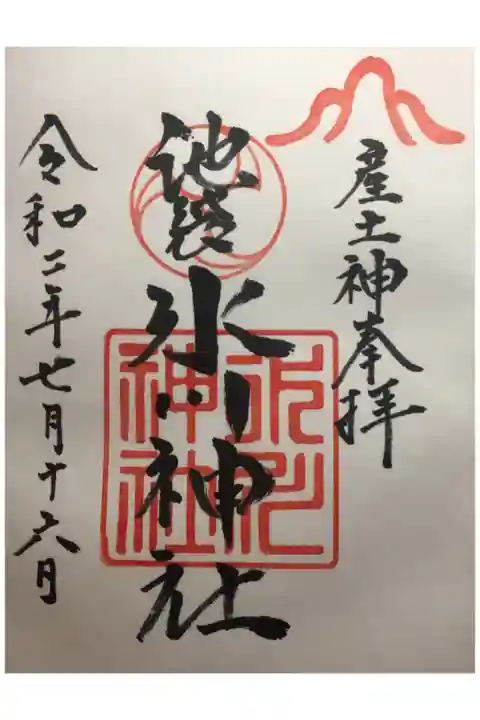 産土神奉拝
池袋氷川神社
氷川神社
令和二年七月十六日